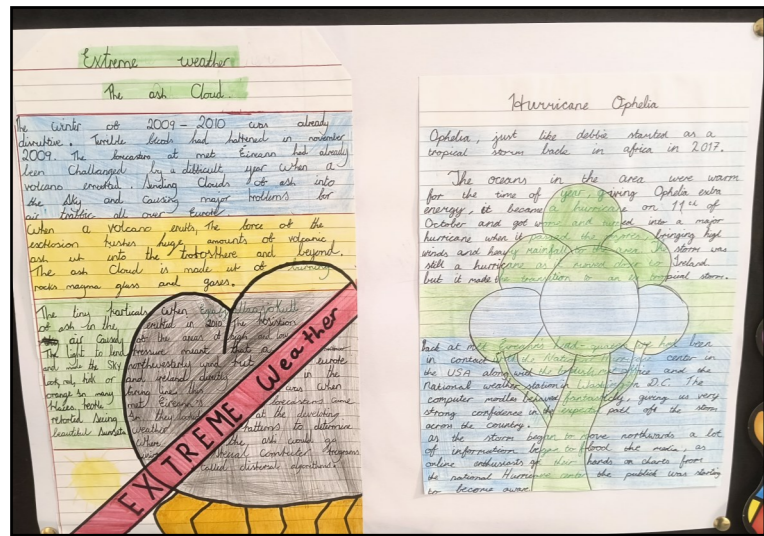 Extreme weather
The ash Cloud.
The winter of 2009-2010 was already
disruptive. Terrible floods had hattened in november
2009. The forecasters at met Éireann had already
been Challenged by a difficult year When a
volcano erruted. Sending Clouds of ash into
the sky and causing major troblems for
air traffic all over Eurote.
When a volcano eruits, The force of the
exttosion tushes huge amounts of volcanic
ash ut into the trotosthere and beyond.
The ash Cloud is made ut of
rocks magma glass and gases.
The tiny
of ash in the
air Causes
The light to
and make the SKY
Look red, tink or
orange in many
Places. Peotle
retorted seeing
beautiful sunsets
When
erutted in 2010 The tosition
of the areas of high and low
Pressure meant that a
northwesterly wind
and ireland directly in the
firing line. this was when
met Éireann's forecasters come
in they looked at the developing
weather tatterns to determine
Where the ash would go
using stecial Comtuter Programs
called distersal algorithms.
EXTREME Weather
Hurricane Ophelia
Ophelia, just like debbie started as a
tropical storm back in africa in 2017.
The oceans in the area were warm
for the time of year, giving Ophelia extra
energy, it became a hurricane on 11th of
October and got
hurricane when it passed the bringing high
winds and heavy rainfall to the area. The storm was
still a hurricane as it Ireland
but it made the transition to an tropical storm.
Back at met Éireanns head-quarters had been
in contact with the National Hurricane center in
the USA along with the british met office and the
National weather station in Washington D.C. The
computer behaved fantasticly, giving us very
strong confidence in the expected path off the storm
across the country.
as the storm began to move northwards a lot
of information began to flood the media, as
online enthusiasts got their hands on charts from
the national Hurricane center the publick was starting
to become aware